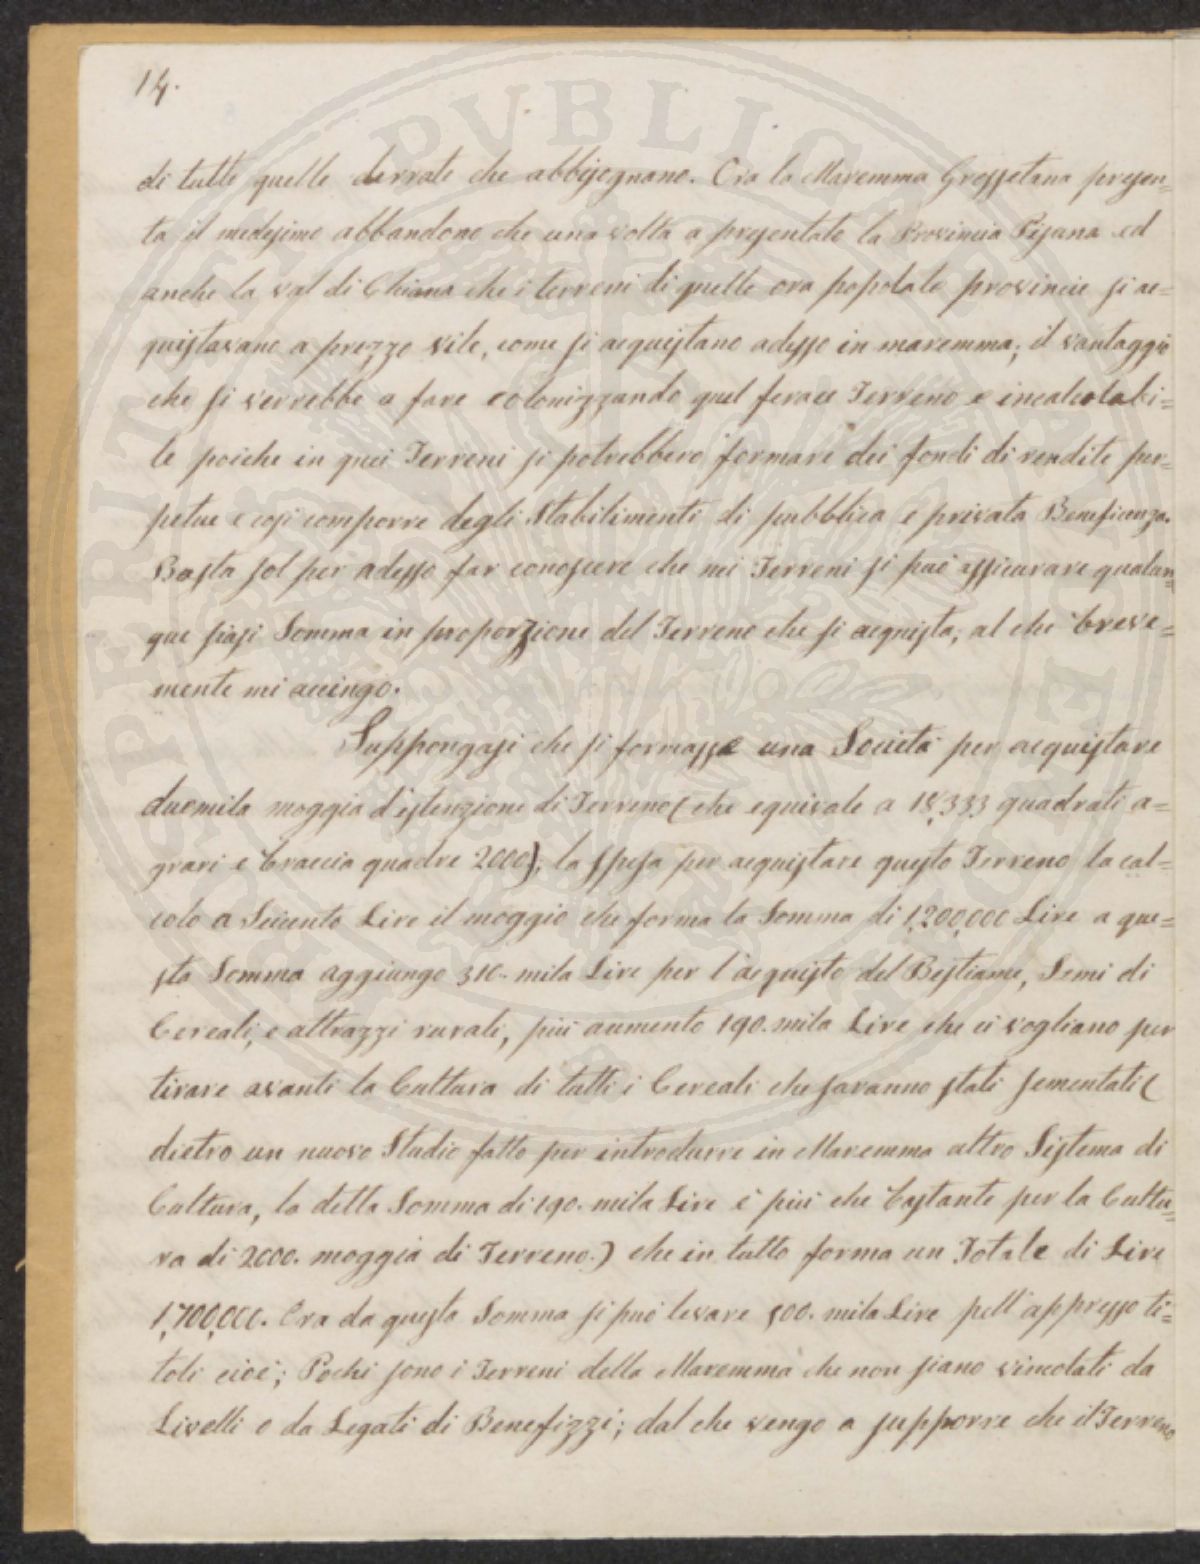 14.
di tutte quelle derrate che abbisognano. Ora la Maremma Grossetana presen=
ta il medesimo abbandono che una volta a presentato la Provincia Pisana ed
anche la val di Chiana che i terreni di quelle ora popolate provincie si ac=
quistavano a prezzo vile, come si acquistano adesso in maremma; il vantaggio
che si verrebbe a fare colonizzando quel ferace Terreno e incalcolabi=
le poiche in quei Terreni si potrebbero formare dei fondi di rendite per=
petue e cosi comporre degli Stabilimenti di pubbblica e privata Beneficenza.
Basta sol per adesso far conoscere che nei Terreni si può assicurare qualun=
que siasi Somma in proporzione del Terreno che si acquista; al che breve=
mente mi accingo.
Suppongasi che si formasse una Società per acquistare
duemila moggia d'estenzione di Terreno (che equivale a 18,333 quadrati a=
grari e braccia quadre 2000); la spesa per acquistare questo Terreno la cal=
colo a Seicento Lire il moggio che forma la Somma di 1,200,000 Lire a que=
sta Somma aggiungo 310. mila Lire per l'acquisto del Bestiame, Semi di
Cereali, e attrazzi rurali, più aumento 190. mila Lire che ci vogliano per
tirare avanti la Cultura di tutti i Cereali che saranno stati sementati (
dietro un nuovo Studio fatto per introdurre in Maremma altro Sistema di
Cultura, la detta Somma di 190. mila Lire è più che bastante per la Cultu=
ra di 2000. moggia di Terreno.) che in tutto forma un Totale di Lire
1,700,000. Ora da questa Somma si può levare 500. mila Lire pell'appresso ti=
toli cioè; Pochi sono i Terreni della Maremma che non siano vincolati da
Livelli o da Legati di Benefizzi; dal che vengo a supporre che il Terreno